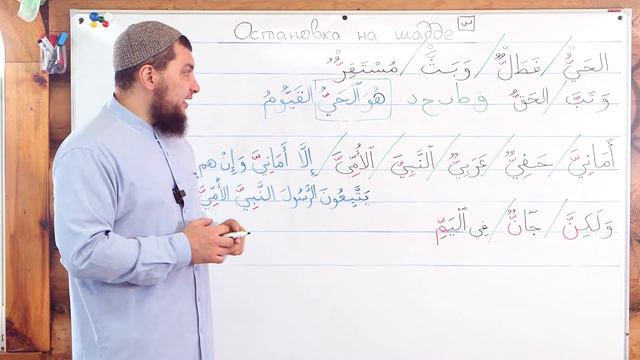 Остановка на шадде س
الحَيُّ / فَطَلٌّ / وَبَثَّ / مُسْتَقِرٌّ
وَتَبَّ / الحَقُّ ق ط ب ج د هُوَ ٱلْحَيُّ القَيُّومُ
أَمَانِيَّ / حَفِيٌّ / عَرَبِيٌّ / النَّبِيَّ / الأُمِّيَّ / إِلَّا أَمَانِيَّ وَإِنْ هم
يَتَّبِعُونَ الرَّسُولَ النَّبِيَّ الأُمِّيَّ
وَلَكِنَّ / جَآنٌّ / فِي ٱلْيَمِّ